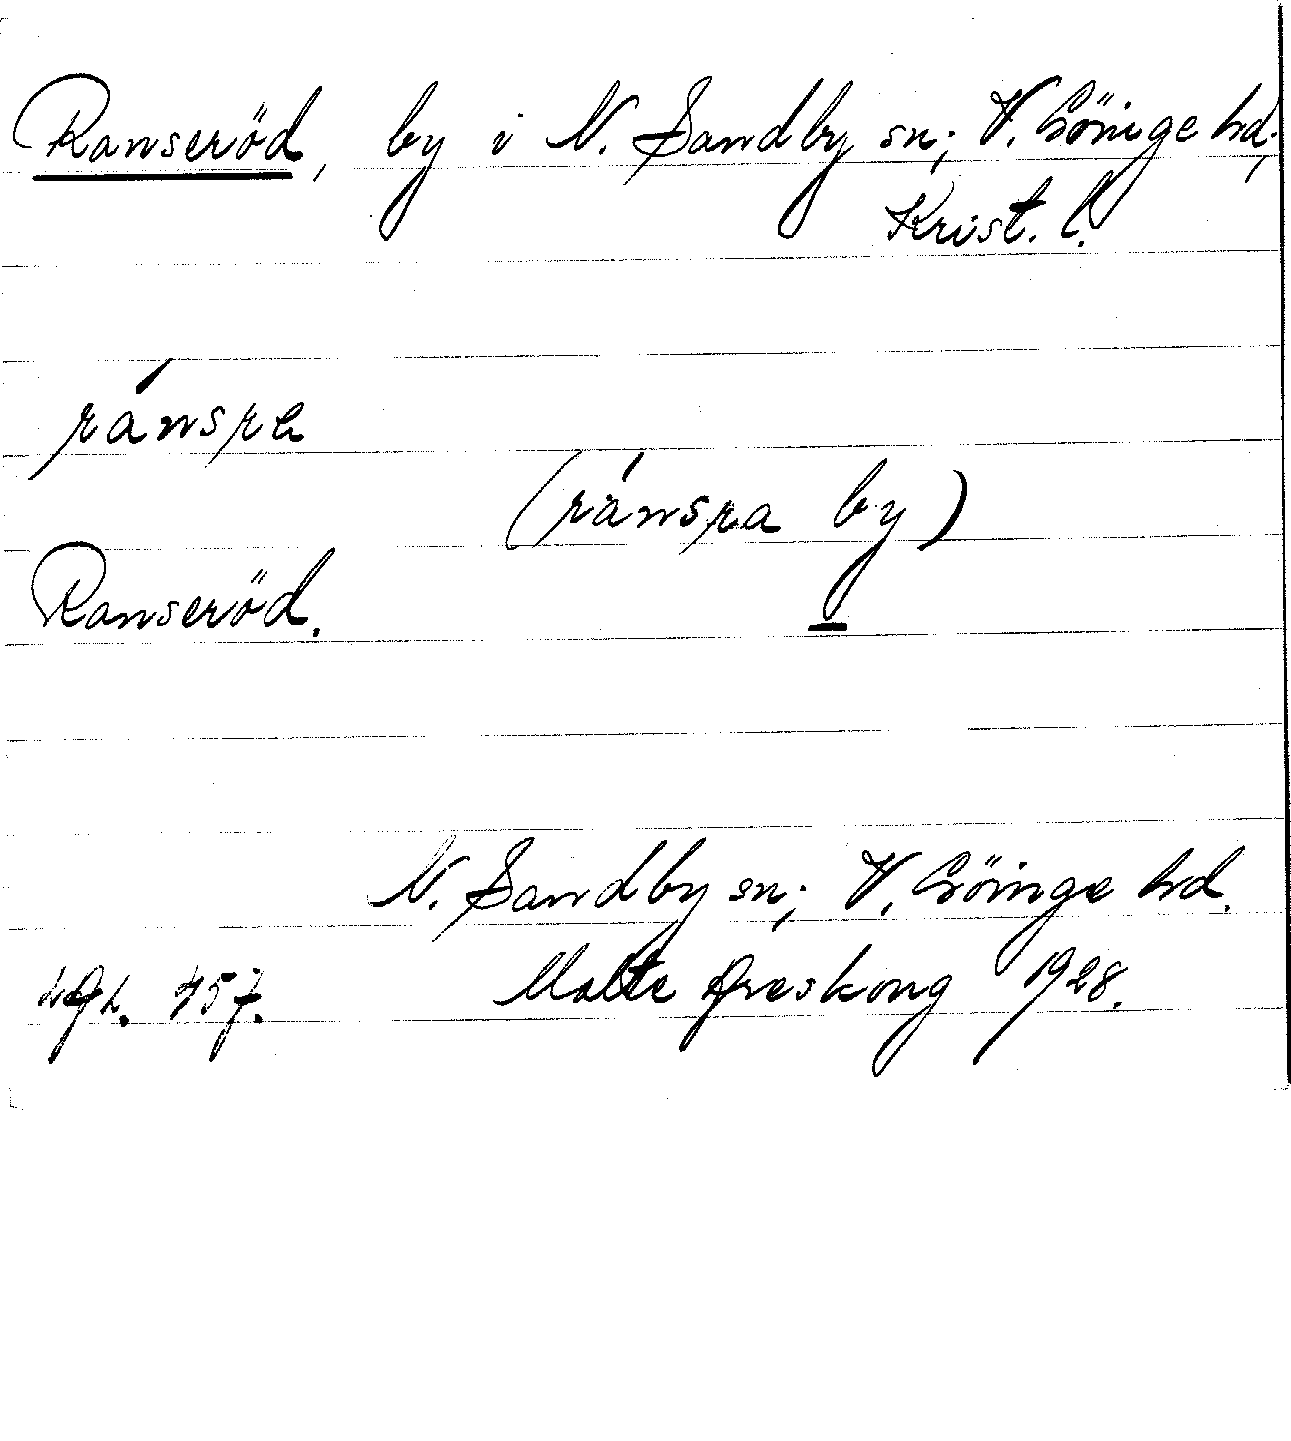 Ranseröd, by i N. Sandby sn; V. Göinge hd;
Krist. l.
ránsra
(ránsra by)
Ranseröd.
N. Sandby sn; V. Göinge hd.
457. Malte Areskoug 1928.